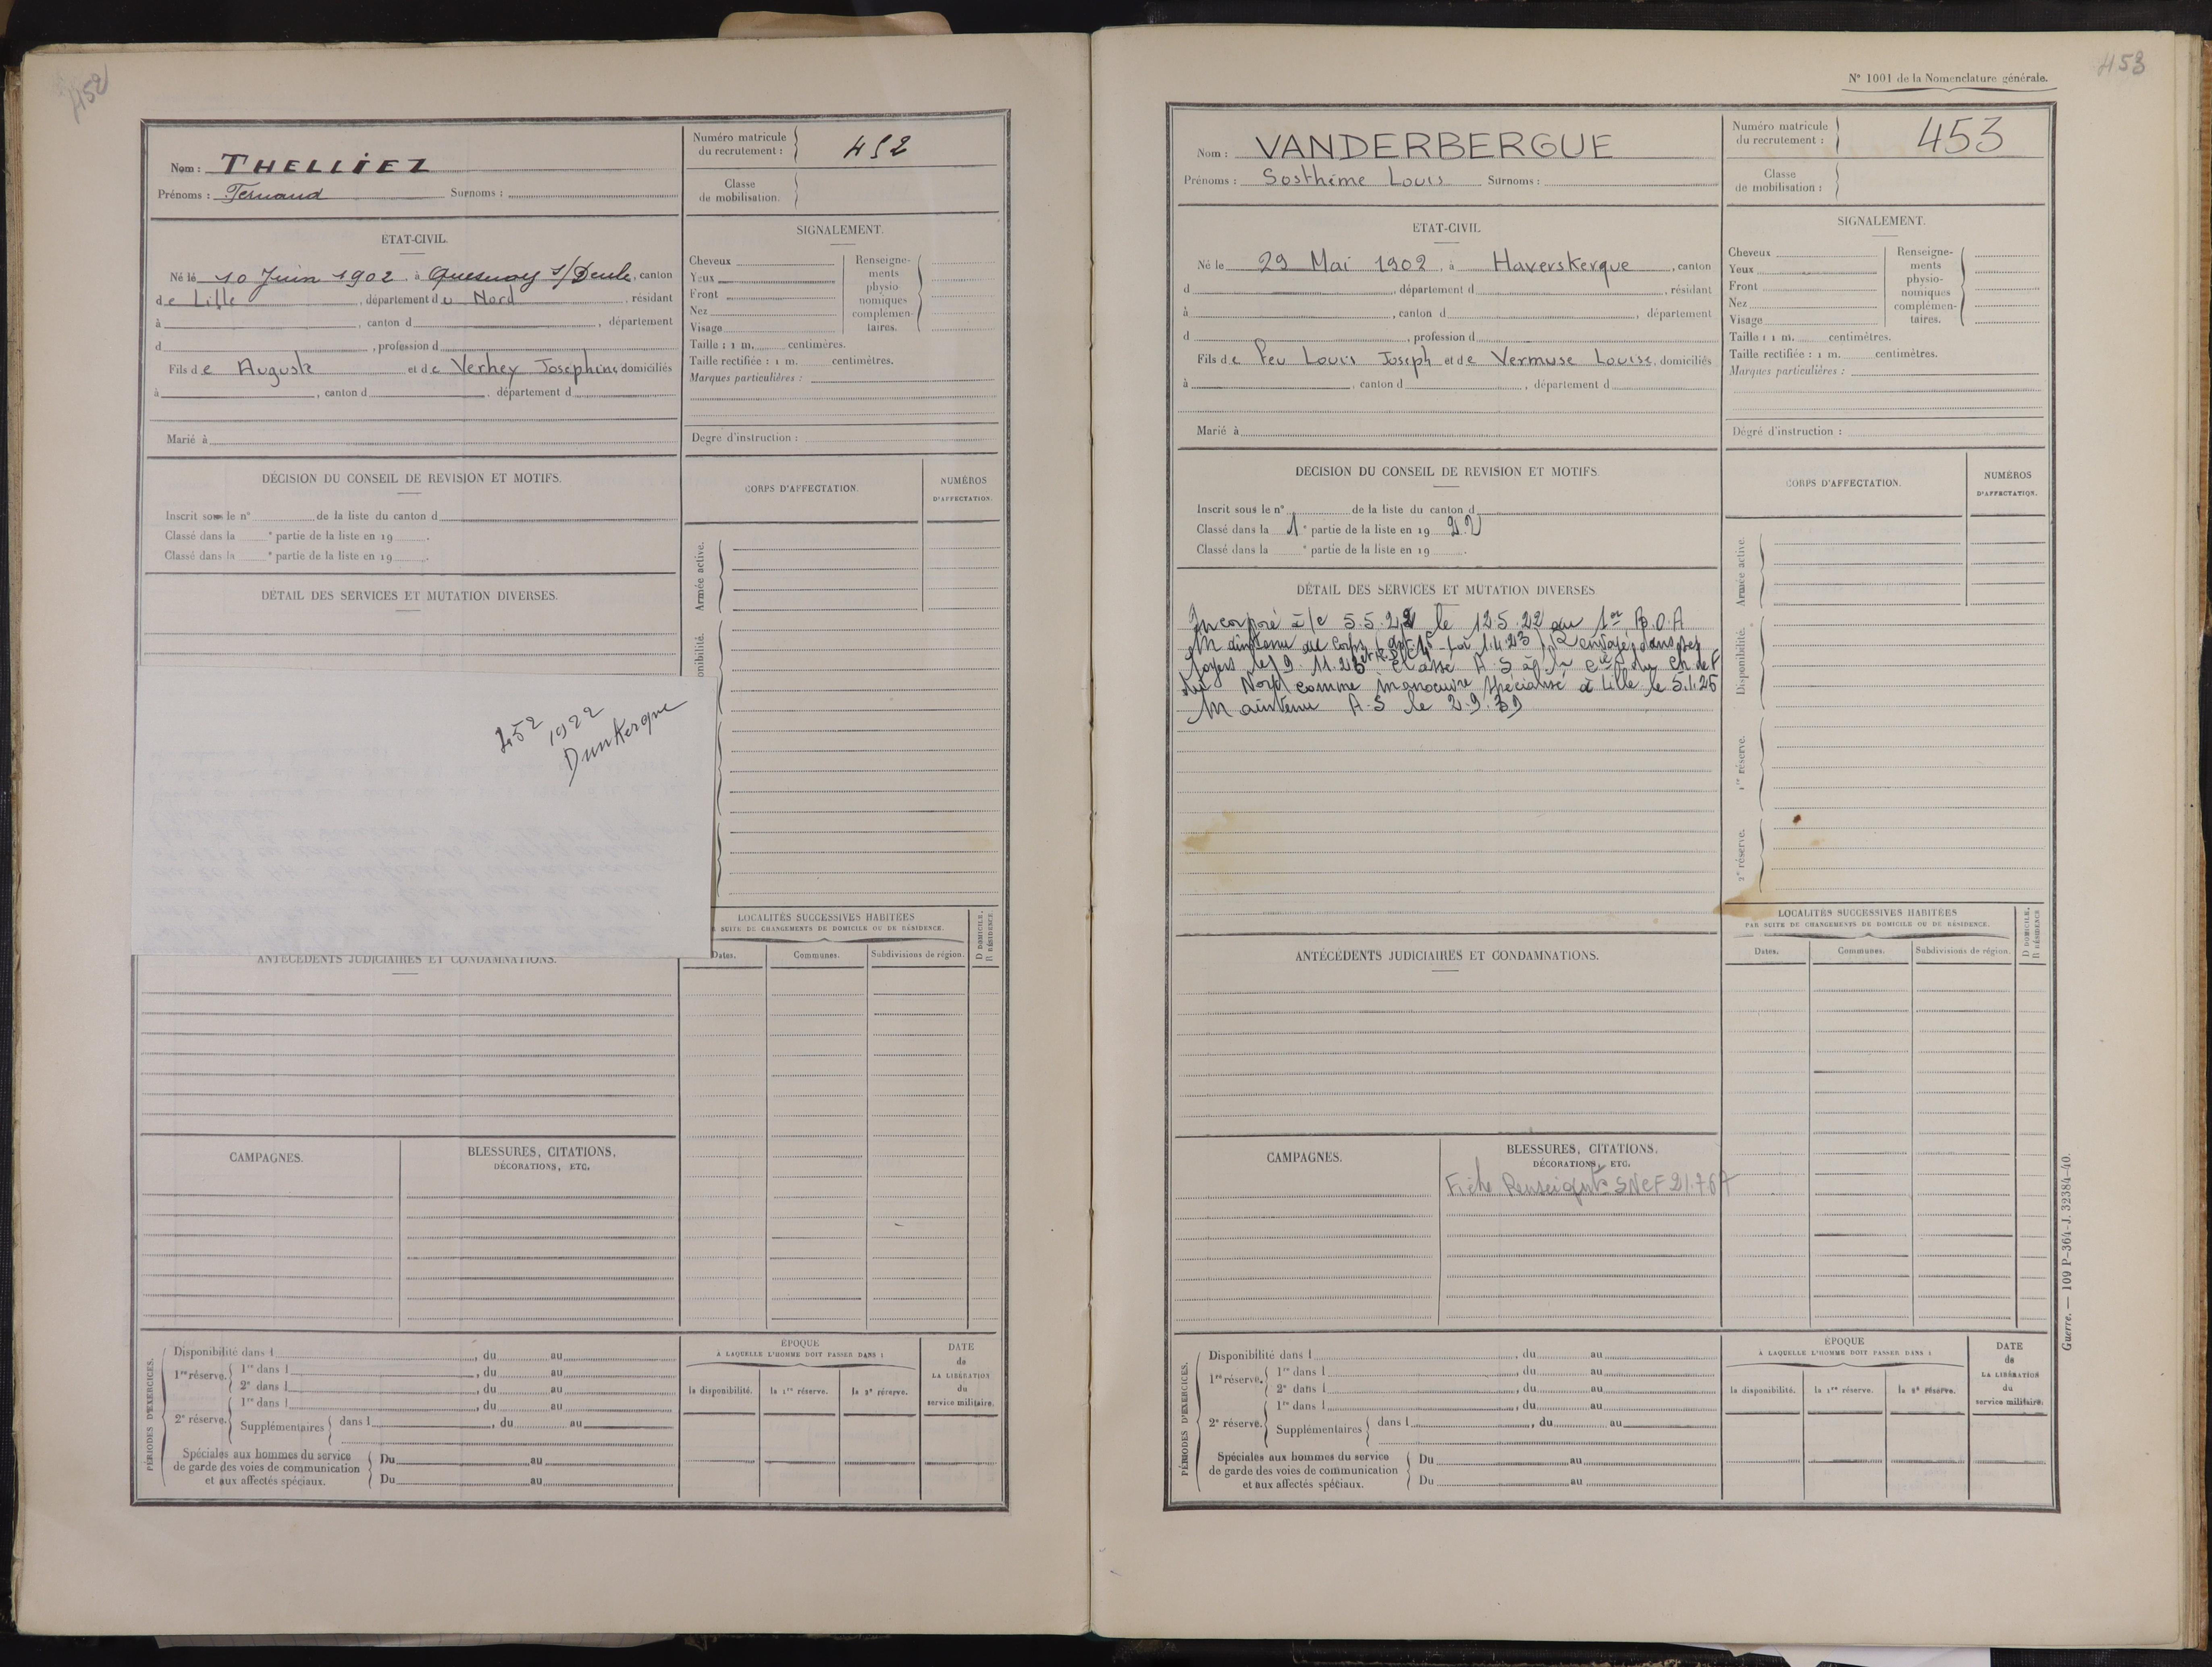 452
Nom : THELLIEZ
Prénoms : Fernand Surnoms :
Numéro matricule
du recrutement : 452
Classe
de mobilisation.
ÉTAT-CIVIL.
Né le 10 Juin 1902, à Quesnoy s/Deule, canton
de Lille, département du Nord, résidant
à , canton d , département
d , profession d
Fils de Auguste et de Verhey Josephine, domiciliés
à , canton d , département d
Marié à
SIGNALEMENT.
Cheveux
Yeux
Front
Nez
Visage
Renseigne-
ments
physio-
nomiques
complémen-
taires.
Taille : 1 m. centimères.
Taille rectifiée : 1 m. centimètres.
Marques particulières :
Degré d'instruction :
DÉCISION DU CONSEIL DE REVISION ET MOTIFS.
Inscrit sous le n° de la liste du canton d
Classé dans la e partie de la liste en 19 .
Classé dans la e partie de la liste en 19 .
CORPS D'AFFECTATION.
NUMÉROS
D'AFFECTATION.
DÉTAIL DES SERVICES ET MUTATION DIVERSES.
Armée active.
onibilité.
452
1922
Dunkerque
LOCALITÉS SUCCESSIVES HABITÉES
SUITE DE CHANGEMENTS DE DOMICILE OU DE RÉSIDENCE.
D DOMICILE.
R RÉSIDENCE.
Dates.
Communes.
Subdivisions de région.
ANTÉCÉDENTS JUDICIAIRES ET CONDAMNATIONS.
CAMPAGNES.
BLESSURES, CITATIONS,
DÉCORATIONS, ETC.
PÉRIODES D'EXERCICES.
Disponibilité dans l , du au
1re réserve. 1re dans l , du au
2e dans l , du au
2e réserve. 1re dans l , du au
Supplémentaires dans l , du au
Spéciales aux hommes du service
de garde des voies de communication
et aux affectés spéciaux.
Du au
Du au
ÉPOQUE
À LAQUELLE L'HOMME DOIT PASSER DANS :
la disponibilité.
la 1re réserve.
la 2e réserve.
DATE
de
LA LIBÉRATION
du
service militaire.
453
N° 1001 de la Nomenclature générale.
Nom : VANDERBERGUE
Prénoms : Sosthème Louis Surnoms :
Numéro matricule
du recrutement : 453
Classe
de mobilisation :
ÉTAT-CIVIL
Né le 29 Mai 1902, à Haverskerque, canton
d , département d , résidant
à , canton d , département
d , profession d
Fils de feu Louis Joseph et de Vermuse Louise, domiciliés
à , canton d , département d
Marié à
SIGNALEMENT.
Cheveux
Yeux
Front
Nez
Visage
Renseigne-
ments
physio-
nomiques
complémen-
taires.
Taille : 1 m. centimètres.
Taille rectifiée : 1 m. centimètres.
Marques particulières :
Dégré d'instruction :
DÉCISION DU CONSEIL DE REVISION ET MOTIFS.
Inscrit sous le n° de la liste du canton d
Classé dans la 1e partie de la liste en 19 22
Classé dans la e partie de la liste en 19 .
CORPS D'AFFECTATION.
NUMÉROS
D'AFFECTATION.
DÉTAIL DES SERVICES ET MUTATION DIVERSES
Incorporé à/c 5.5.22 le 12.5.22 au 1er B.O.A
Maintenu au Corps (art. Loi 1.4.23) Renvoyé dans ses
foyers le 9.11.23 Classé A.S à la Cie du Ch de F
du Nord comme manoeuvre spécialisé à Lille le 5.1.25
Maintenu A.S le 2.9.39
Armée active.
Disponibilité.
1re réserve.
2e réserve.
LOCALITÉS SUCCESSIVES HABITÉES
PAR SUITE DE CHANGEMENTS DE DOMICILE OU DE RÉSIDENCE.
D DOMICILE,
R RÉSIDENCE
Dates.
Communes.
Subdivisions de région.
ANTÉCÉDENTS JUDICIAIRES ET CONDAMNATIONS.
CAMPAGNES.
BLESSURES, CITATIONS,
DÉCORATIONS, ETC.
Fiche Renseignts SNCF 21.7.67
PÉRIODES D'EXERCICES.
Disponibilité dans l , du au
1re réserve. 1re dans l , du au
2e dans l , du au
2e réserve. 1re dans l , du au
Supplémentaires dans l , du au
Spéciales aux hommes du service
de garde des voies de communication
et aux affectés spéciaux.
Du au
Du au
ÉPOQUE
À LAQUELLE L'HOMME DOIT PASSER DANS :
la disponibilité.
la 1re réserve.
la 2e réserve.
DATE
de
LA LIBÉRATION
du
service militaire.
Guerre. — 109 P-364-J. 32384-40.